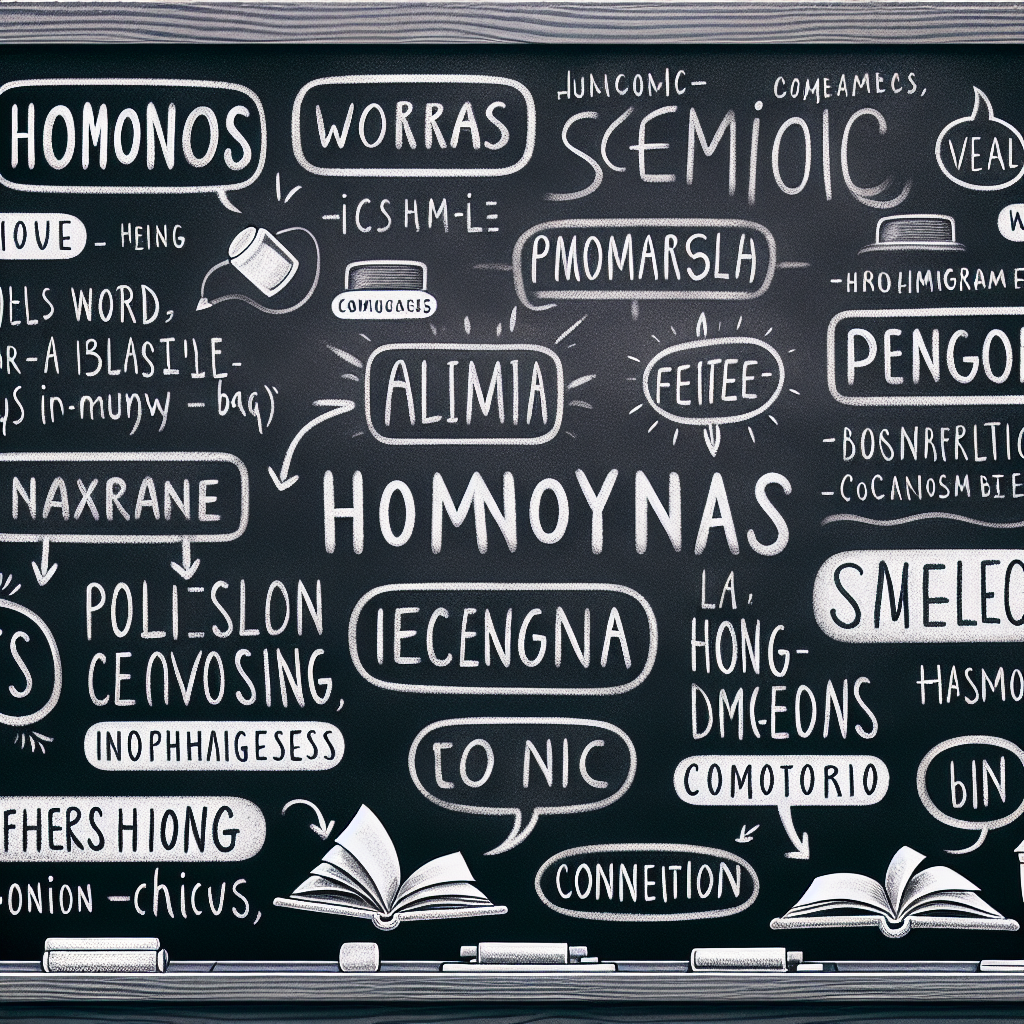 HOMONOS
WORRAS
JUNICOMIC-
COMEAMECS,
SCEMIOIC
VEAL
IOVE - HEING
-iCS HM-LE
PMOMARSLH
COMUOGAES
-HROHMIGRAMF
ELS WORD,
R-A
in-munyw - baq)
ALIMIA
FEITEE-
PENGO
-BOSNRFRLTIC
-COCANOSM BIE
NAXRANE
HOMNOYNAS
POLI-SLON
CENVOSING,
INOPHHAIGESESS
IECENGNA
LA,
HONG-
DMGEONS
SMELEC
HASMO
S
CO NIC
COMOTORIO
bIN
FHERSHIONG
-ONION -chicus,
CONNEITION